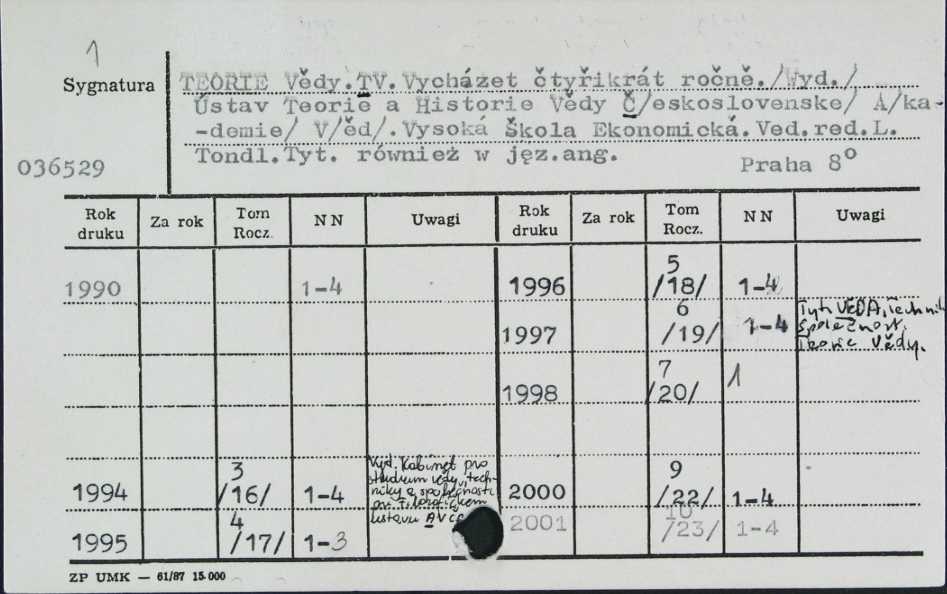 1
Sygnatura
TEORIE Vědy.TV.Vycházet čtyřikrát ročně./Wyd./
Ústav Teorie a Historie Vědy Č/eskoslovenske/ A/ka-
-demie/ V/ěd/.Vysoká Škola Ekonomická.Ved.red.L.
Tondl.Tyt. również w jęz.ang.
Praha 8°
036529
Rok druku Za rok Tom Rocz. NN Uwagi Rok druku Za rok Tom Rocz. NN Uwagi
1990 1-4 1996 5 /18/ 1-4
1997 6 /19/ 1-4
Tyt: VĚDA, Technik
společnost.
Teorie Vědy.
1998 7 /20/ 1
1994 3 /16/ 1-4
Wyd. Kabinet pro
studium vědy, tech-
niky a společnosti
při Filozofickém
ústavu AV
2000 9 /22/ 1-4
1995 4 /17/ 1-3 2001 10 /23/ 1-4
ZP UMK — 61/87 15.000